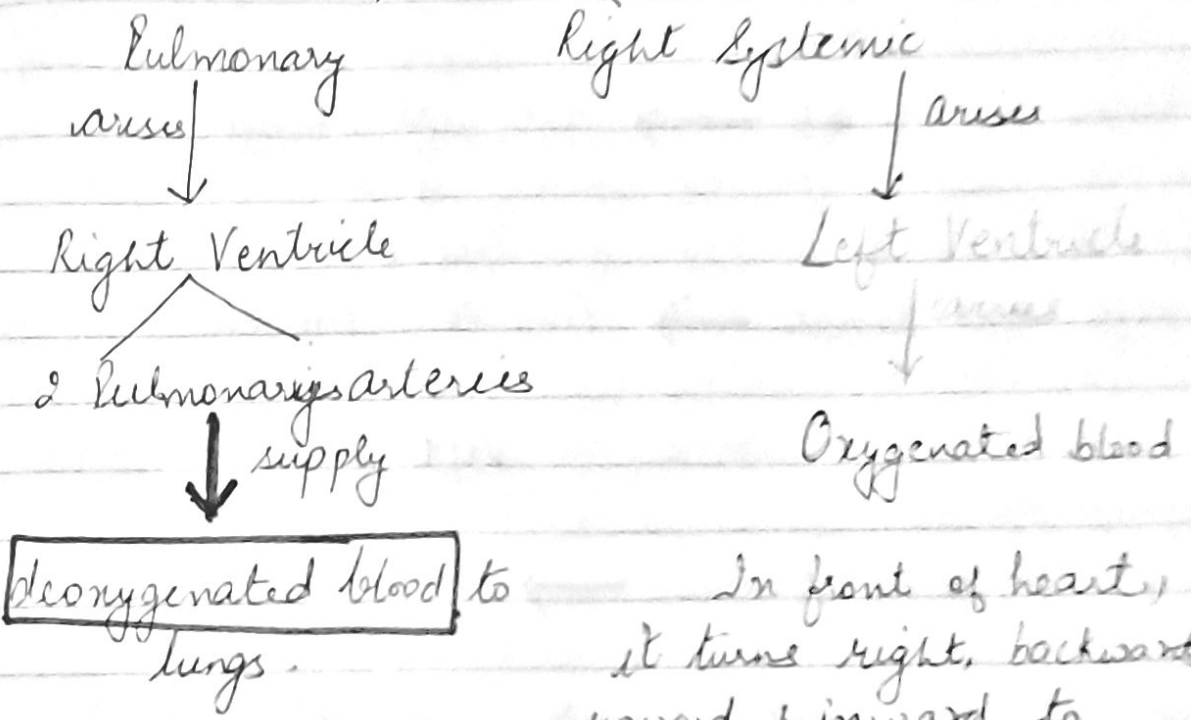 Pulmonary
arises
Right Ventricle
2 Pulmonary arteries
supply
deoxygenated blood to
lungs.
Right Systemic
arises
Left Ventricle
arises
Oxygenated blood
In front of heart,
it turns right, backward
inward to